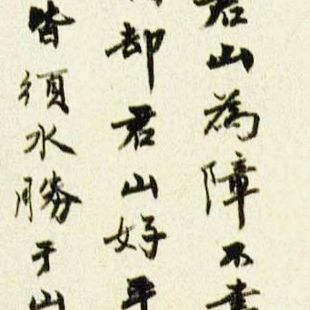 君山為障不
却君山好平
皆須水勝于山